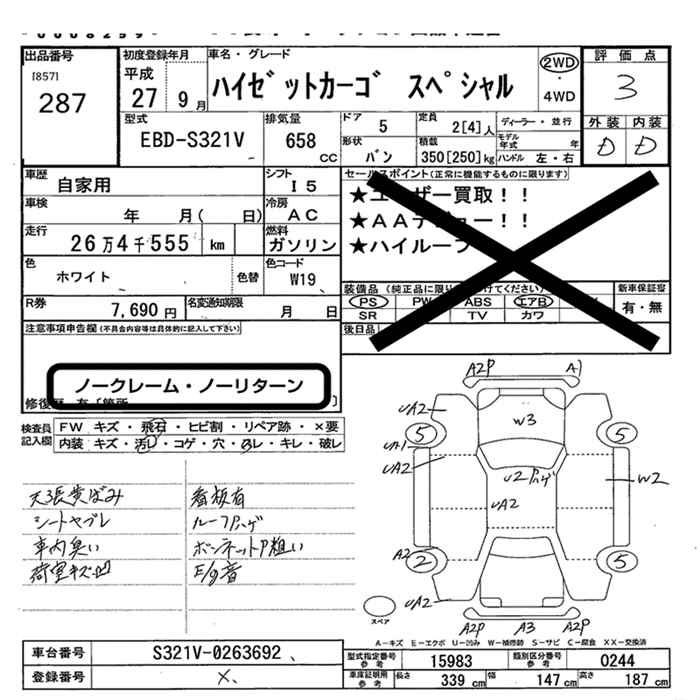 出品番号
[857]
287
初度登録年月
平成
27 9月
車名・グレード
ハイゼットカーゴ スペシャル
2WD
・
4WD
評価点
3
外装 内装
D D
型式
EBD-S321V
排気量
658
CC
ドア
5
定員
2[4]人
ディーラー・並行
形状
バン
積載
350[250]kg
モデル年式 年
ハンドル 左・右
車歴
自家用
シフト
I5
車検
年 月( 日)
冷房
AC
走行
26万4千555 km
燃料
ガソリン
色
ホワイト
色替
色コード
W19
R券
7,690円
名変通知期限
月 日
セールスポイント(正常に機能するものに限ります)
★ユーザー買取!!
★AAデビュー!!
★ハイルーフ
装備品
PS PW ABS エアB
SR TV カワ
後日品
新車保証書
有・無
注意事項申告欄(不具合内容等は具体的に記入して下さい)
ノークレーム・ノーリターン
修復歴 有〔箇所 〕
検査員記入欄
FW キズ・飛石・ヒビ割・リペア跡・×要
内装 キズ・汚レ・コゲ・穴・スレ・キレ・破レ
天張黄ばみ
シートヤブレ
車内臭い
荷室キズ凹
看板有
ルーフPハゲ
ボンネットP粗い
E/g音
A2P A1
UA2
5 5
W3
UA1
UA2
U2Pハゲ
UA2
W2
A2
2 5
UA2 UA2
A2P A3 A2P
スペア
A-キズ E-エクボ U-凹み W-補修跡 S-サビ C-腐食 XX-交換済
車台番号
S321V-0263692
登録番号
×
型式指定番号
参考
15983
類別区分番号
参考
0244
車庫証明用
参考
長さ
339 cm
幅
147 cm
高さ
187 cm